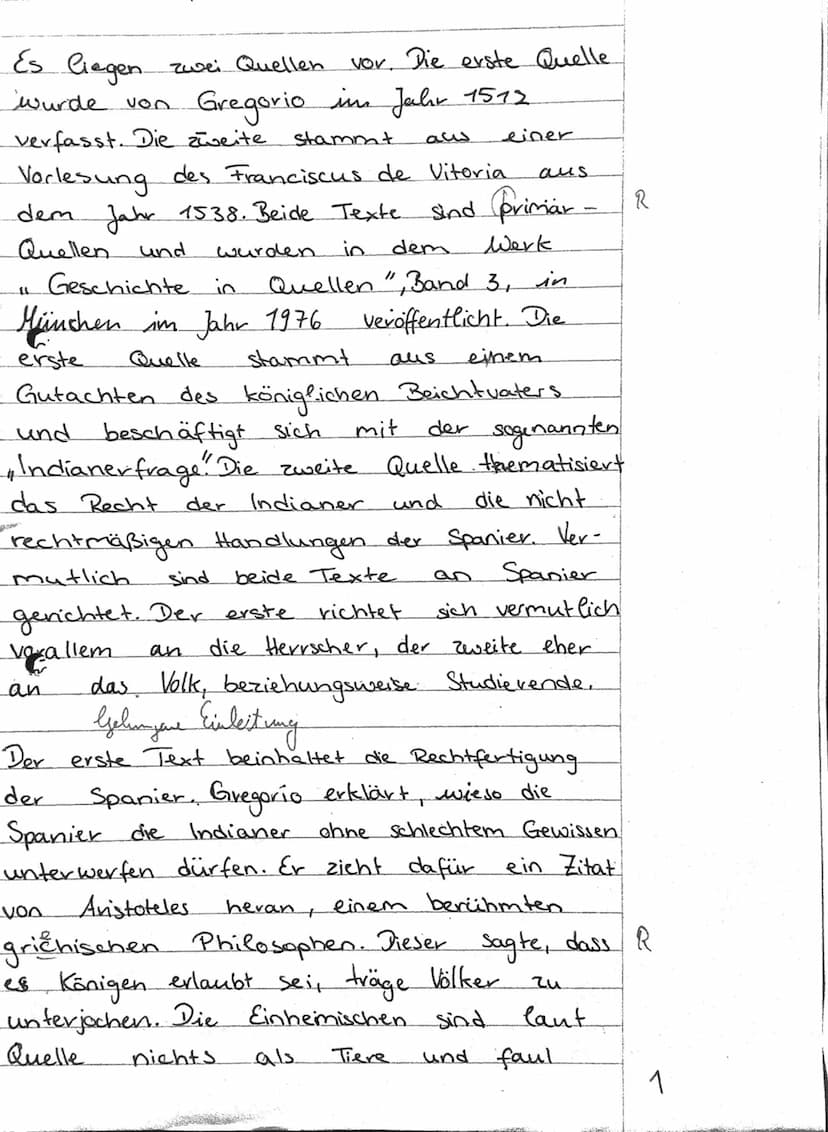 Es liegen zwei Quellen vor. Die erste Quelle
wurde von Gregorio im Jahr 1512
verfasst. Die zweite stammt aus einer
Vorlesung des Franciscus de Vitoria aus
dem Jahr 1538. Beide Texte sind primär- R
Quellen und wurden in dem Werk
"Geschichte in Quellen", Band 3, in
München im Jahr 1976 veröffentlicht. Die
erste Quelle stammt aus einem
Gutachten des königlichen Beichtvaters
und beschäftigt sich mit der sogenannten
„Indianerfrage". Die zweite Quelle thematisiert
das Recht der Indianer und die nicht
rechtmäßigen Handlungen der Spanier. Ver-
mutlich sind beide Texte an Spanier
gerichtet. Der erste richtet sich vermutlich
vorallem an die Herrscher, der zweite eher
an das Volk, beziehungsweise Studierende.
Gelungene Einleitung
Der erste Text beinhaltet die Rechtfertigung
der Spanier. Gregorio erklärt, wieso die
Spanier die Indianer ohne schlechtem Gewissen
unterwerfen dürfen. Er zieht dafür ein Zitat
von Aristoteles heran, einem berühmten
griechischen Philosophen. Dieser sagte, dass R
es Königen erlaubt sei, träge Völker zu
unterjochen. Die Einheimischen sind laut
Quelle nichts als Tiere und faul
1